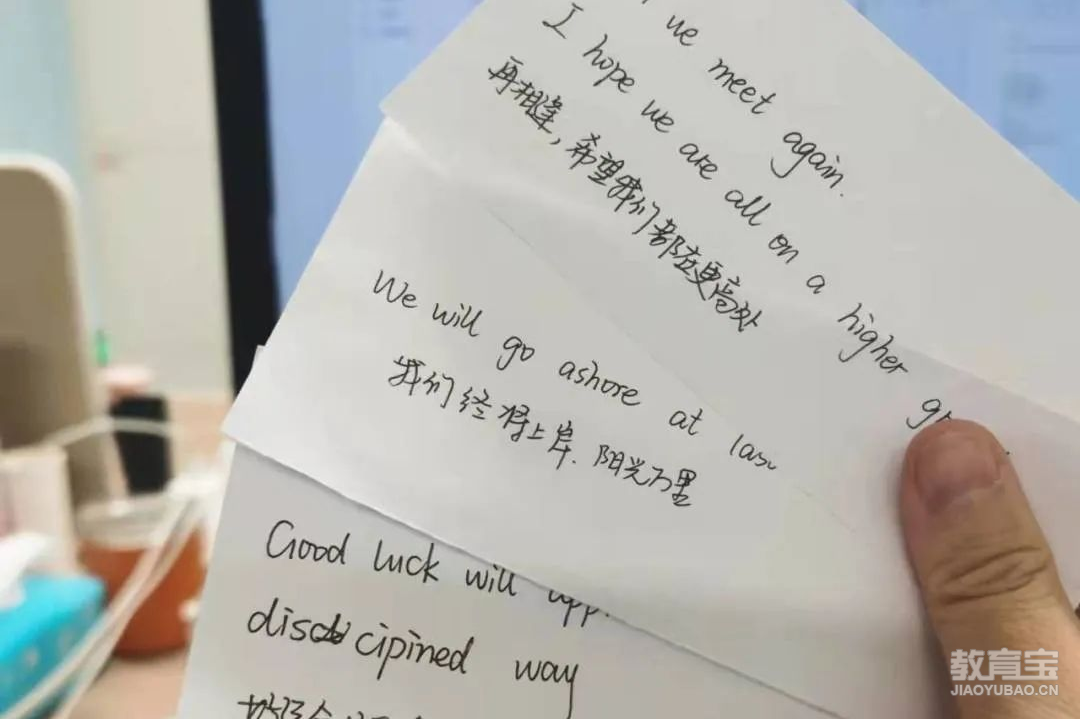 we meet again.
I hope we are all on a higher
再相逢,希望我们都在更高处
We will go ashore at las
我们经将上岸.阳光万里
Good luck will app
disci cipined way
教育宝
JIAOYUBAO.CN